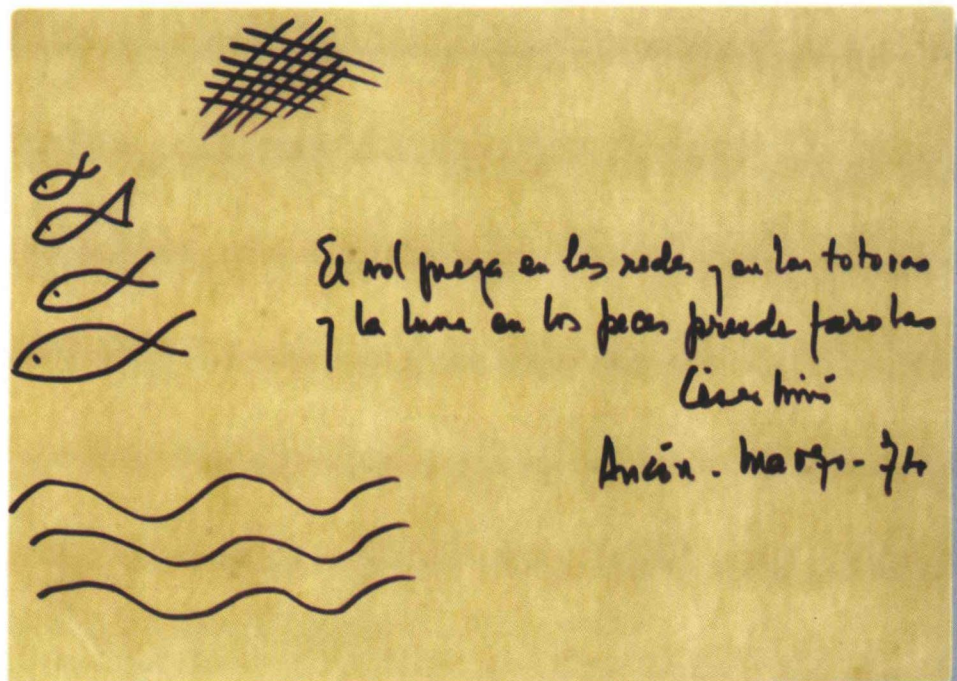 El sol juega en las redes y en las totoras
y la luna en los peces prende farolas
César Miró
Ancón - Marzo - 74